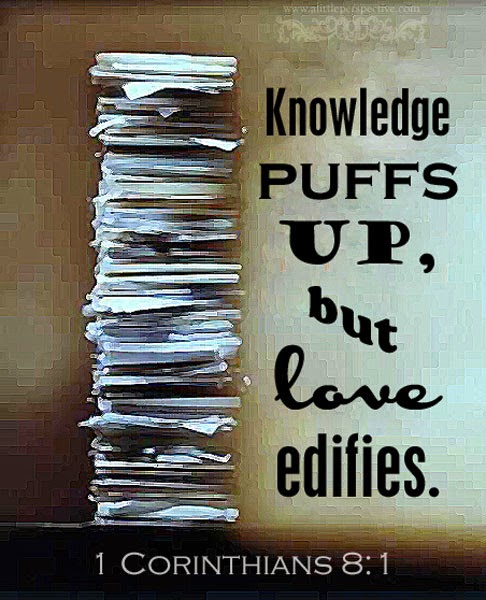 www.alittleperspective.com
Knowledge
PUFFS
UP,
but
love
edifies.
1 CORINTHIANS 8:1